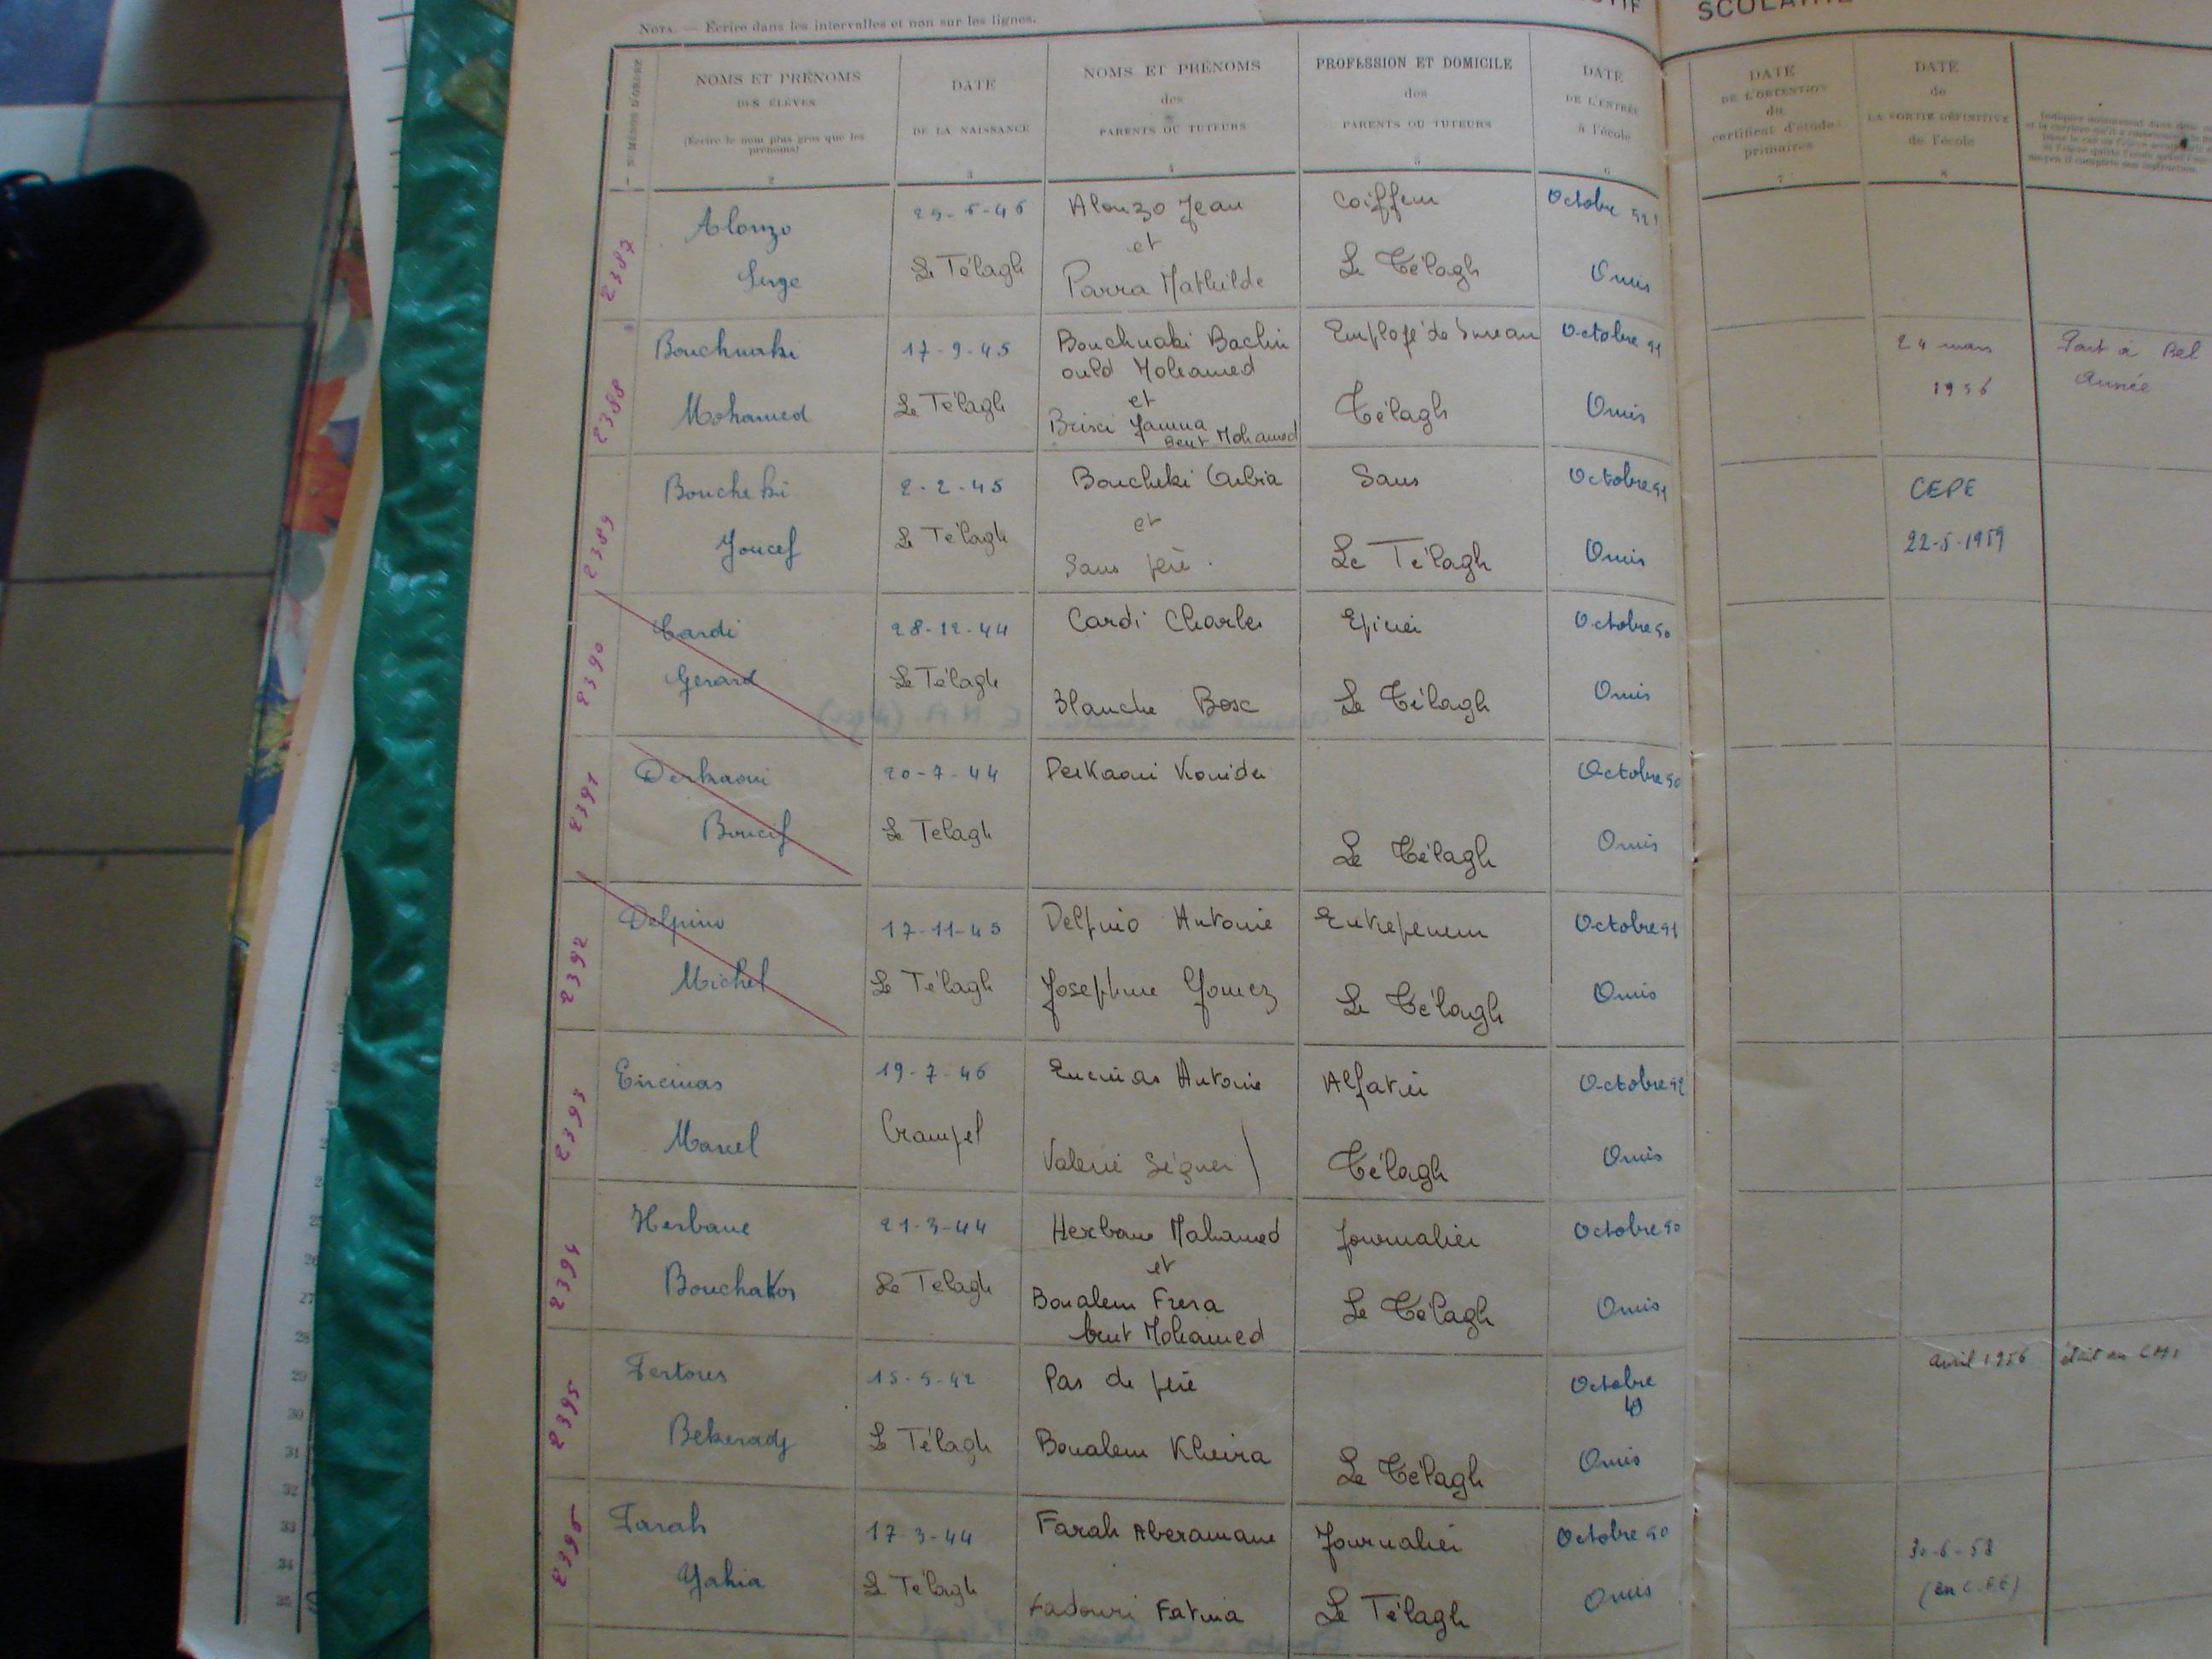 NOTA. — Ecrire dans les intervalles et non sur les lignes.
SCOLAIRE
NUMÉROS D'ORDRE
NOMS ET PRÉNOMS
DES ÉLÈVES
(Ecrire le nom plus gros que les
prénoms)
DATE
DE LA NAISSANCE
NOMS ET PRÉNOMS
des
PARENTS OU TUTEURS
PROFESSION ET DOMICILE
des
PARENTS OU TUTEURS
DATE
DE L'ENTRÉE
à l'école
DATE
DE L'OBTENTION
du
certificat d'études
primaires
DATE
de
LA SORTIE DÉFINITIVE
de l'école
1 2 3 4 5 6 7 8
2387
Alonzo
Serge
Le Télagh
Alonzo Jean
et
Parra Mathilde
Coiffeur
Le Télagh
Octobre
Omis
2388
Bouchnaki
Mohamed
17-9-45
Le Télagh
Bouchnaki Bachir
ould Mohamed
et
Brixi Yamna
bent Mohamed
Employé de bureau
Télagh
Octobre 51
Omis
24 mars
1956
Part à Bel
Année
2389
Boucheki
Youcef
2-2-45
Le Télagh
Boucheki Arbia
et
Sans père.
Sans
Le Télagh
Octobre 51
Omis
CEPE
22-5-1959
2390
Cardi
Gérard
28-12-44
Le Télagh
Cardi Charles
Blanche Bosc
Epicier
Le Télagh
Octobre 50
Omis
2391
Derkaoui
Boucif
20-7-44
Le Telagh
DerKaoui Kouider
Le Télagh
Octobre 50
Omis
2392
Delpino
Michel
17-11-45
Le Télagh
Delpino Antoine
Joséphine Gomez
Entrepreneur
Le Télagh
Octobre 51
Omis
2393
Encinas
Marcel
19-7-46
Crampel
Encinas Antoine
Valerie Séguer
Alfatier
Télagh
Octobre 52
Omis
2394
Herbane
Bouchakor
21-3-44
Le Telagh
Herbane Mohamed
et
Boualem Frera
bent Mohamed
Journalier
Le Télagh
Octobre 50
Omis
2395
Fertores
Bekeradj
15-5-42
Le Télagh
Pas de père
Boualem Kheira
Le Télagh
Octobre
49
Omis
avril 1956
était au CM1
2396
Farah
Yahia
17-3-44
Le Télagh
Farah Aberamane
Kadouri Fatma
Journalier
Le Télagh
Octobre 50
Omis
30-6-58
(en C.F.E)
26
27
28
29
30
31
32
33
34
35